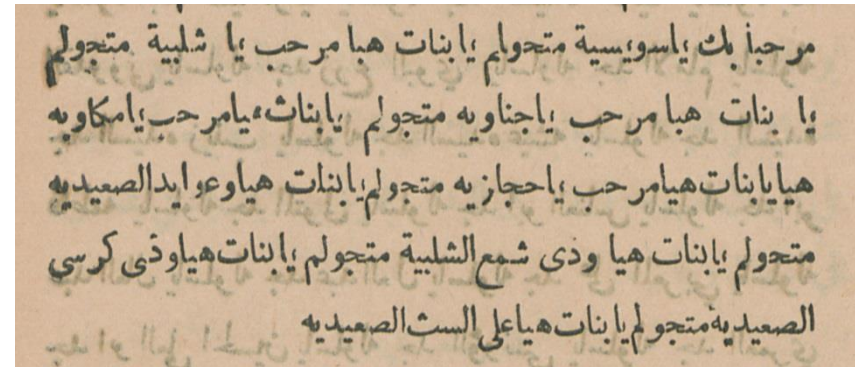 مرحبا بك ياسويسية متحولم يابنات هبا مرحب يا شلبية متجولم
يا بنات هبا مرحب ياجناويه متجولم يابناث هيامرحب يامكاويه
هيايابنات هيامرحب ياحجازيه متجولم يابنات هياوعوايدالصعيديه
متحولم يابنات هيا وذى شمع الشلبية متجولم يابنات هياوذى كرسي
الصعيديه متجولم يابنات هياعلى الست الصعيديه